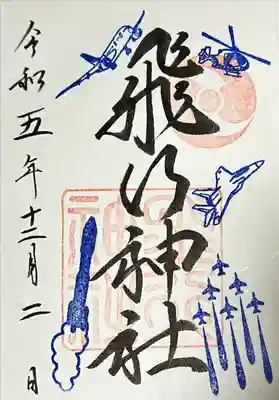 飛行神社
令和五年十二月二日